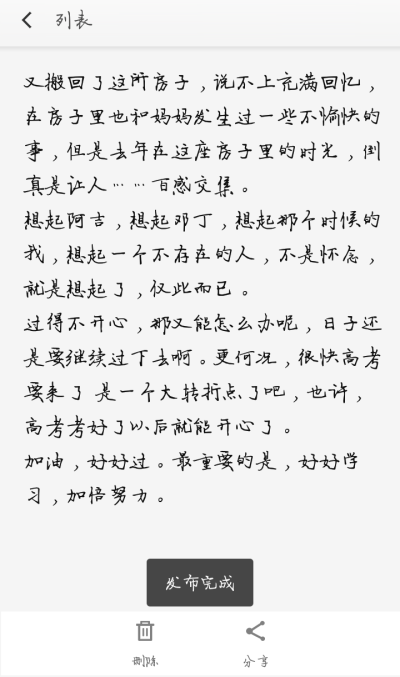 列表
又搬回了这所房子，说不上充满回忆，
在房子里也和妈妈发生过一些不愉快的
事，但是去年在这座房子里的时光，倒
真是让人……百感交集。
想起阿吉，想起邓丁，想起那个时候的
我，想起一个不存在的人，不是怀念，
就是想起了，仅此而已。
过得不开心，那又能怎么办呢，日子还
是要继续过下去啊。更何况，很快高考
要来了 是一个大转折点了吧，也许，
高考考好了以后就能开心了。
加油，好好过。最重要的是，好好学
习，加倍努力。
发布完成
删除
分享